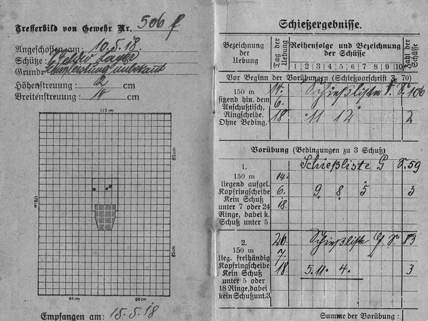 Trefferbild von Gewehr Nr. 506 f
Angeschossen am: 10.5.18.
Schütze:
Grund:
Höhenstreuung: 12 cm
Breitenstreuung: 14 cm
Empfangen am: 15-5-18
Schießergebnisse.
Bezeichnung der Uebung
Tag der Uebung
Reihenfolge und Bezeichnung der Schüsse
1 2 3 4 5 6 7 8 9 10
Zahl der Schüsse
Vor Beginn der Vorübungen (Schießvorschrift 70)
150 m
sitzend hin. dem
Anschußtisch,
Ringscheibe.
Ohne Beding.
6.
18
11 12
2
Vorübung (Bedingungen zu 3 Schuß)
1.
150 m
liegend aufgel.
Kopfringscheibe
Kein Schuß
unter 7 oder 24
Ringe, dabei k.
Schuß unter 5
14.
6.
18.
Schießliste G S. 59
9 8 5
3
2.
150 m
lieg. freihändig
Kopfringscheibe
Kein Schuß
unter 5 oder
18 Ringe, dabei
kein Schuß unt. 3
20.
7.
18
Schießliste G S. 83
5. 11. 4.
3
Summe der Vorübung: